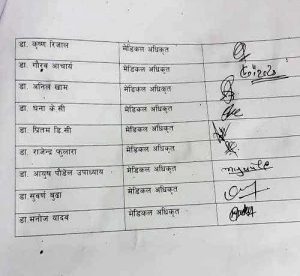 डा. कृष्ण रिजाल मेडिकल अधिकृत
डा. गौरव आचार्य मेडिकल अधिकृत
डा. अनिल खाम मेडिकल अधिकृत
डा. घना के.सी मेडिकल अधिकृत
डा. प्रितम डि.सी मेडिकल अधिकृत
डा. राजेन्द्र फुलारा मेडिकल अधिकृत
डा. आयुष पौडेल उपाध्याय मेडिकल अधिकृत
डा सुवर्ण बुढा मेडिकल अधिकृत
डा मनोज यादव मेडिकल अधिकृत